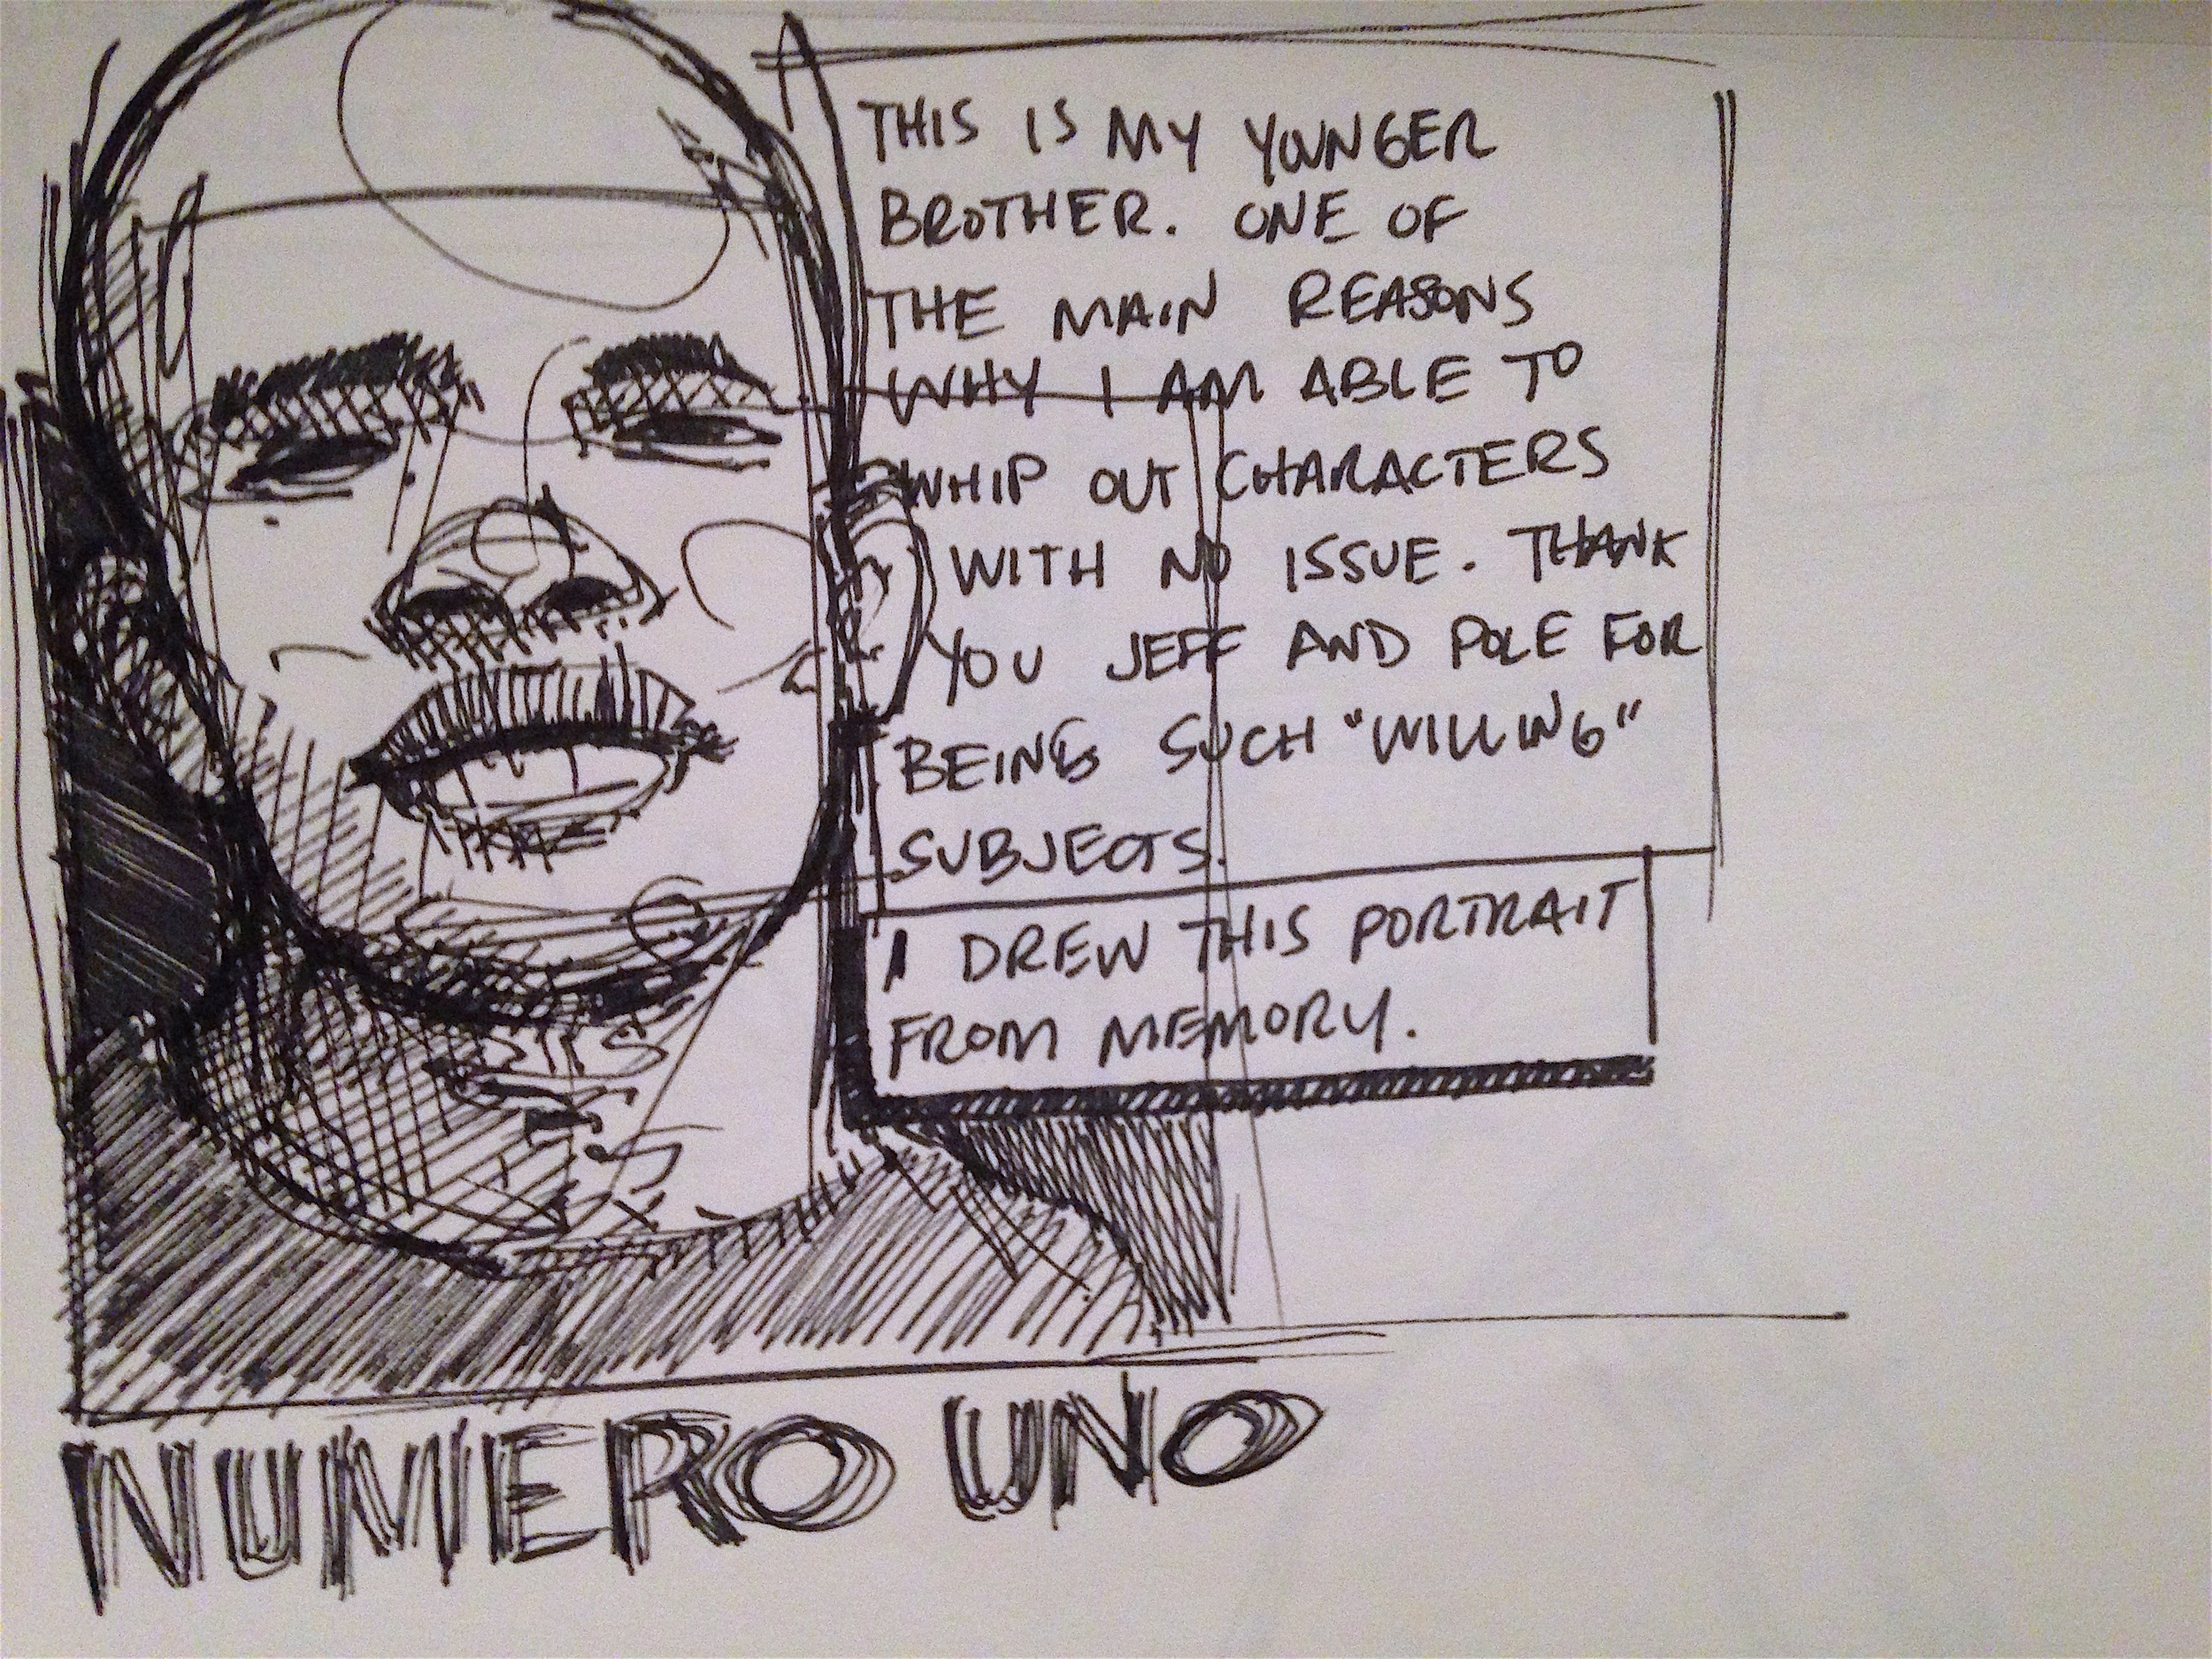 THIS IS MY YOUNGER
BROTHER. ONE OF
THE MAIN REASONS
WHY I AM ABLE TO
WHIP OUT CHARACTERS
WITH NO ISSUE. THANK
YOU JEFF AND POLE FOR
BEING SUCH "WILLING"
SUBJECTS.
I DREW THIS PORTRAIT
FROM MEMORY.
NUMERO UNO